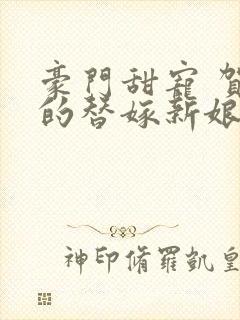 豪門甜寵 賀
的替嫁新娘
神印脩羅凱皇